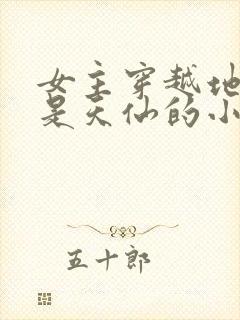 女主穿越地
是天仙的小
五十郎